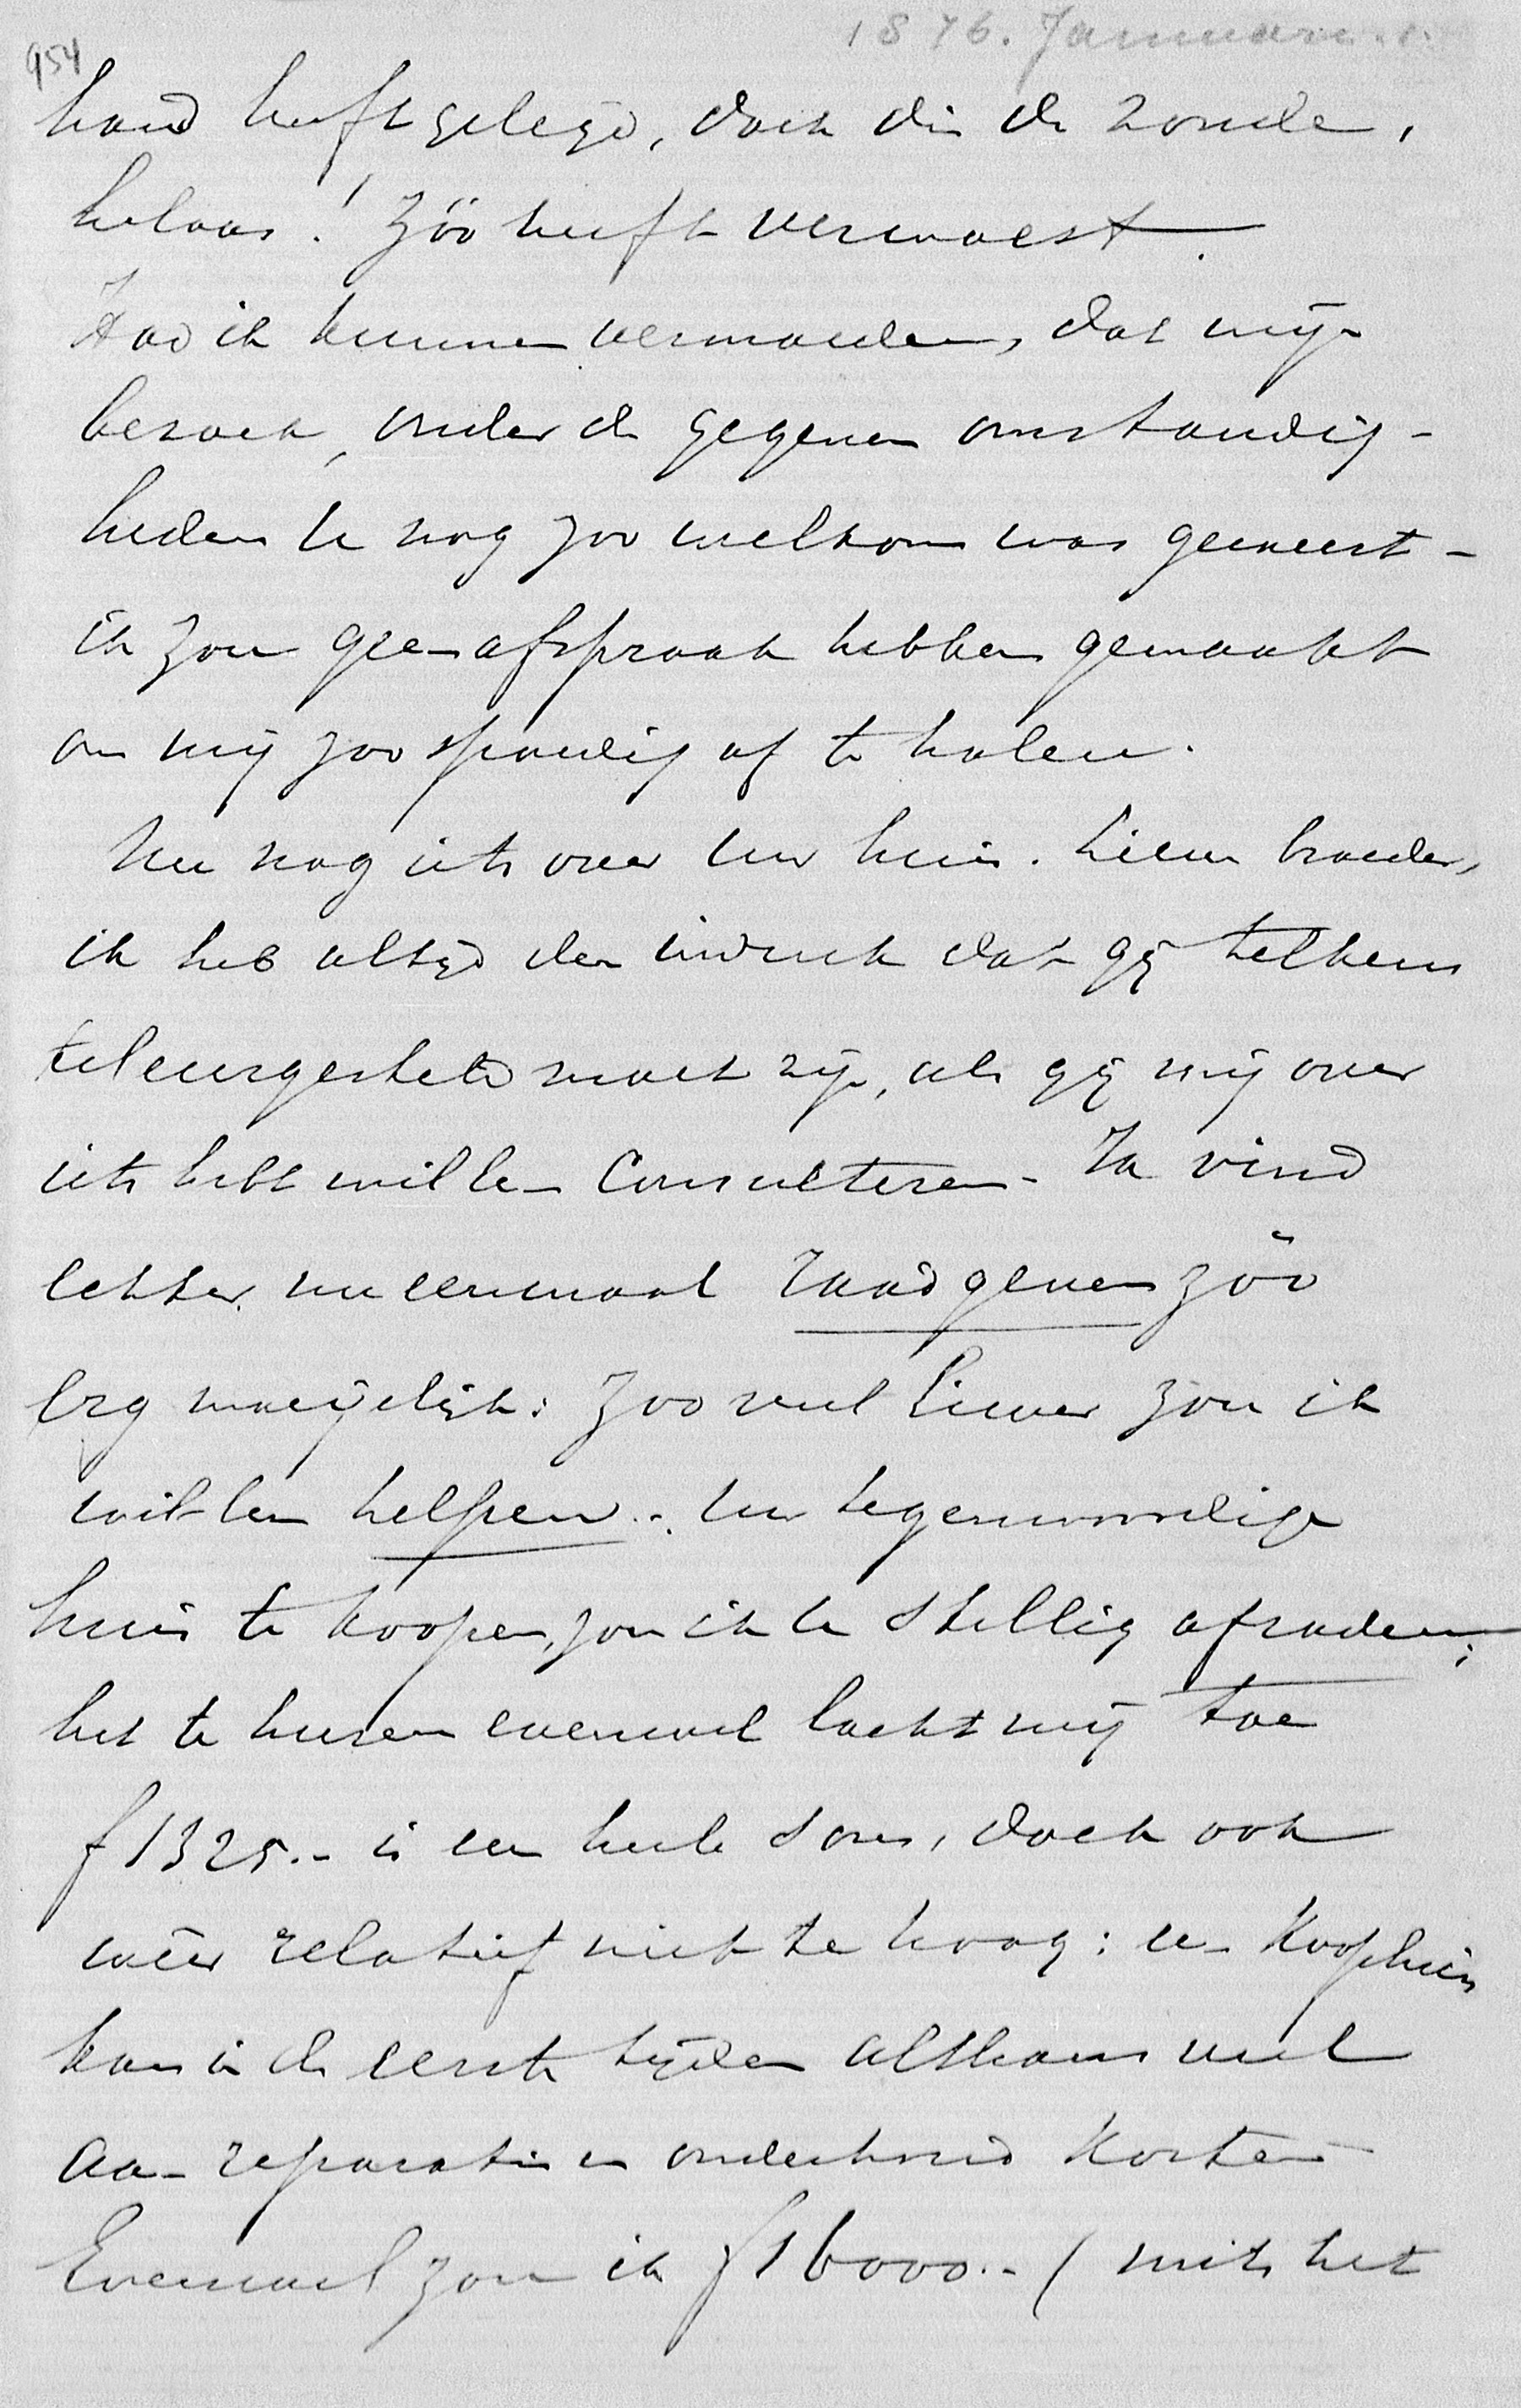 1876. Januari
954
hand heeft gelegd, doch die de zonde,
helaas! zóó heeft verwoest.
Had ik kunnen vermoeden, dat mijn
bezoek, onder de gegeven omstandig-
heden U nog zoo welkom was geweest -
ik zou geen afspraak hebben gemaakt
om mij zoo spoedig af te halen.
Nu nog iets over Uw huis. Lieve broeder,
ik heb altijd den indruk dat gij telkens
teleurgesteld moet zijn, als gij mij over
iets hebt willen Consulteren - Ik vind
echter nu eenmaal raadgeven zóó
erg moeijelijk: zoo veel liever zou ik
willen helpen. Uw tegenwoordige
huis te koopen, zou ik U stellig afraden;
het te huren evenwel lacht mij toe
f 1325.- is een heele som, doch ook
wêer relatief niet te hoog: een koophuis
kan in de eerste tijden althans veel
aan reparatie en onderhoud kosten
Evenwel zou ik f 16000.- ( mits het